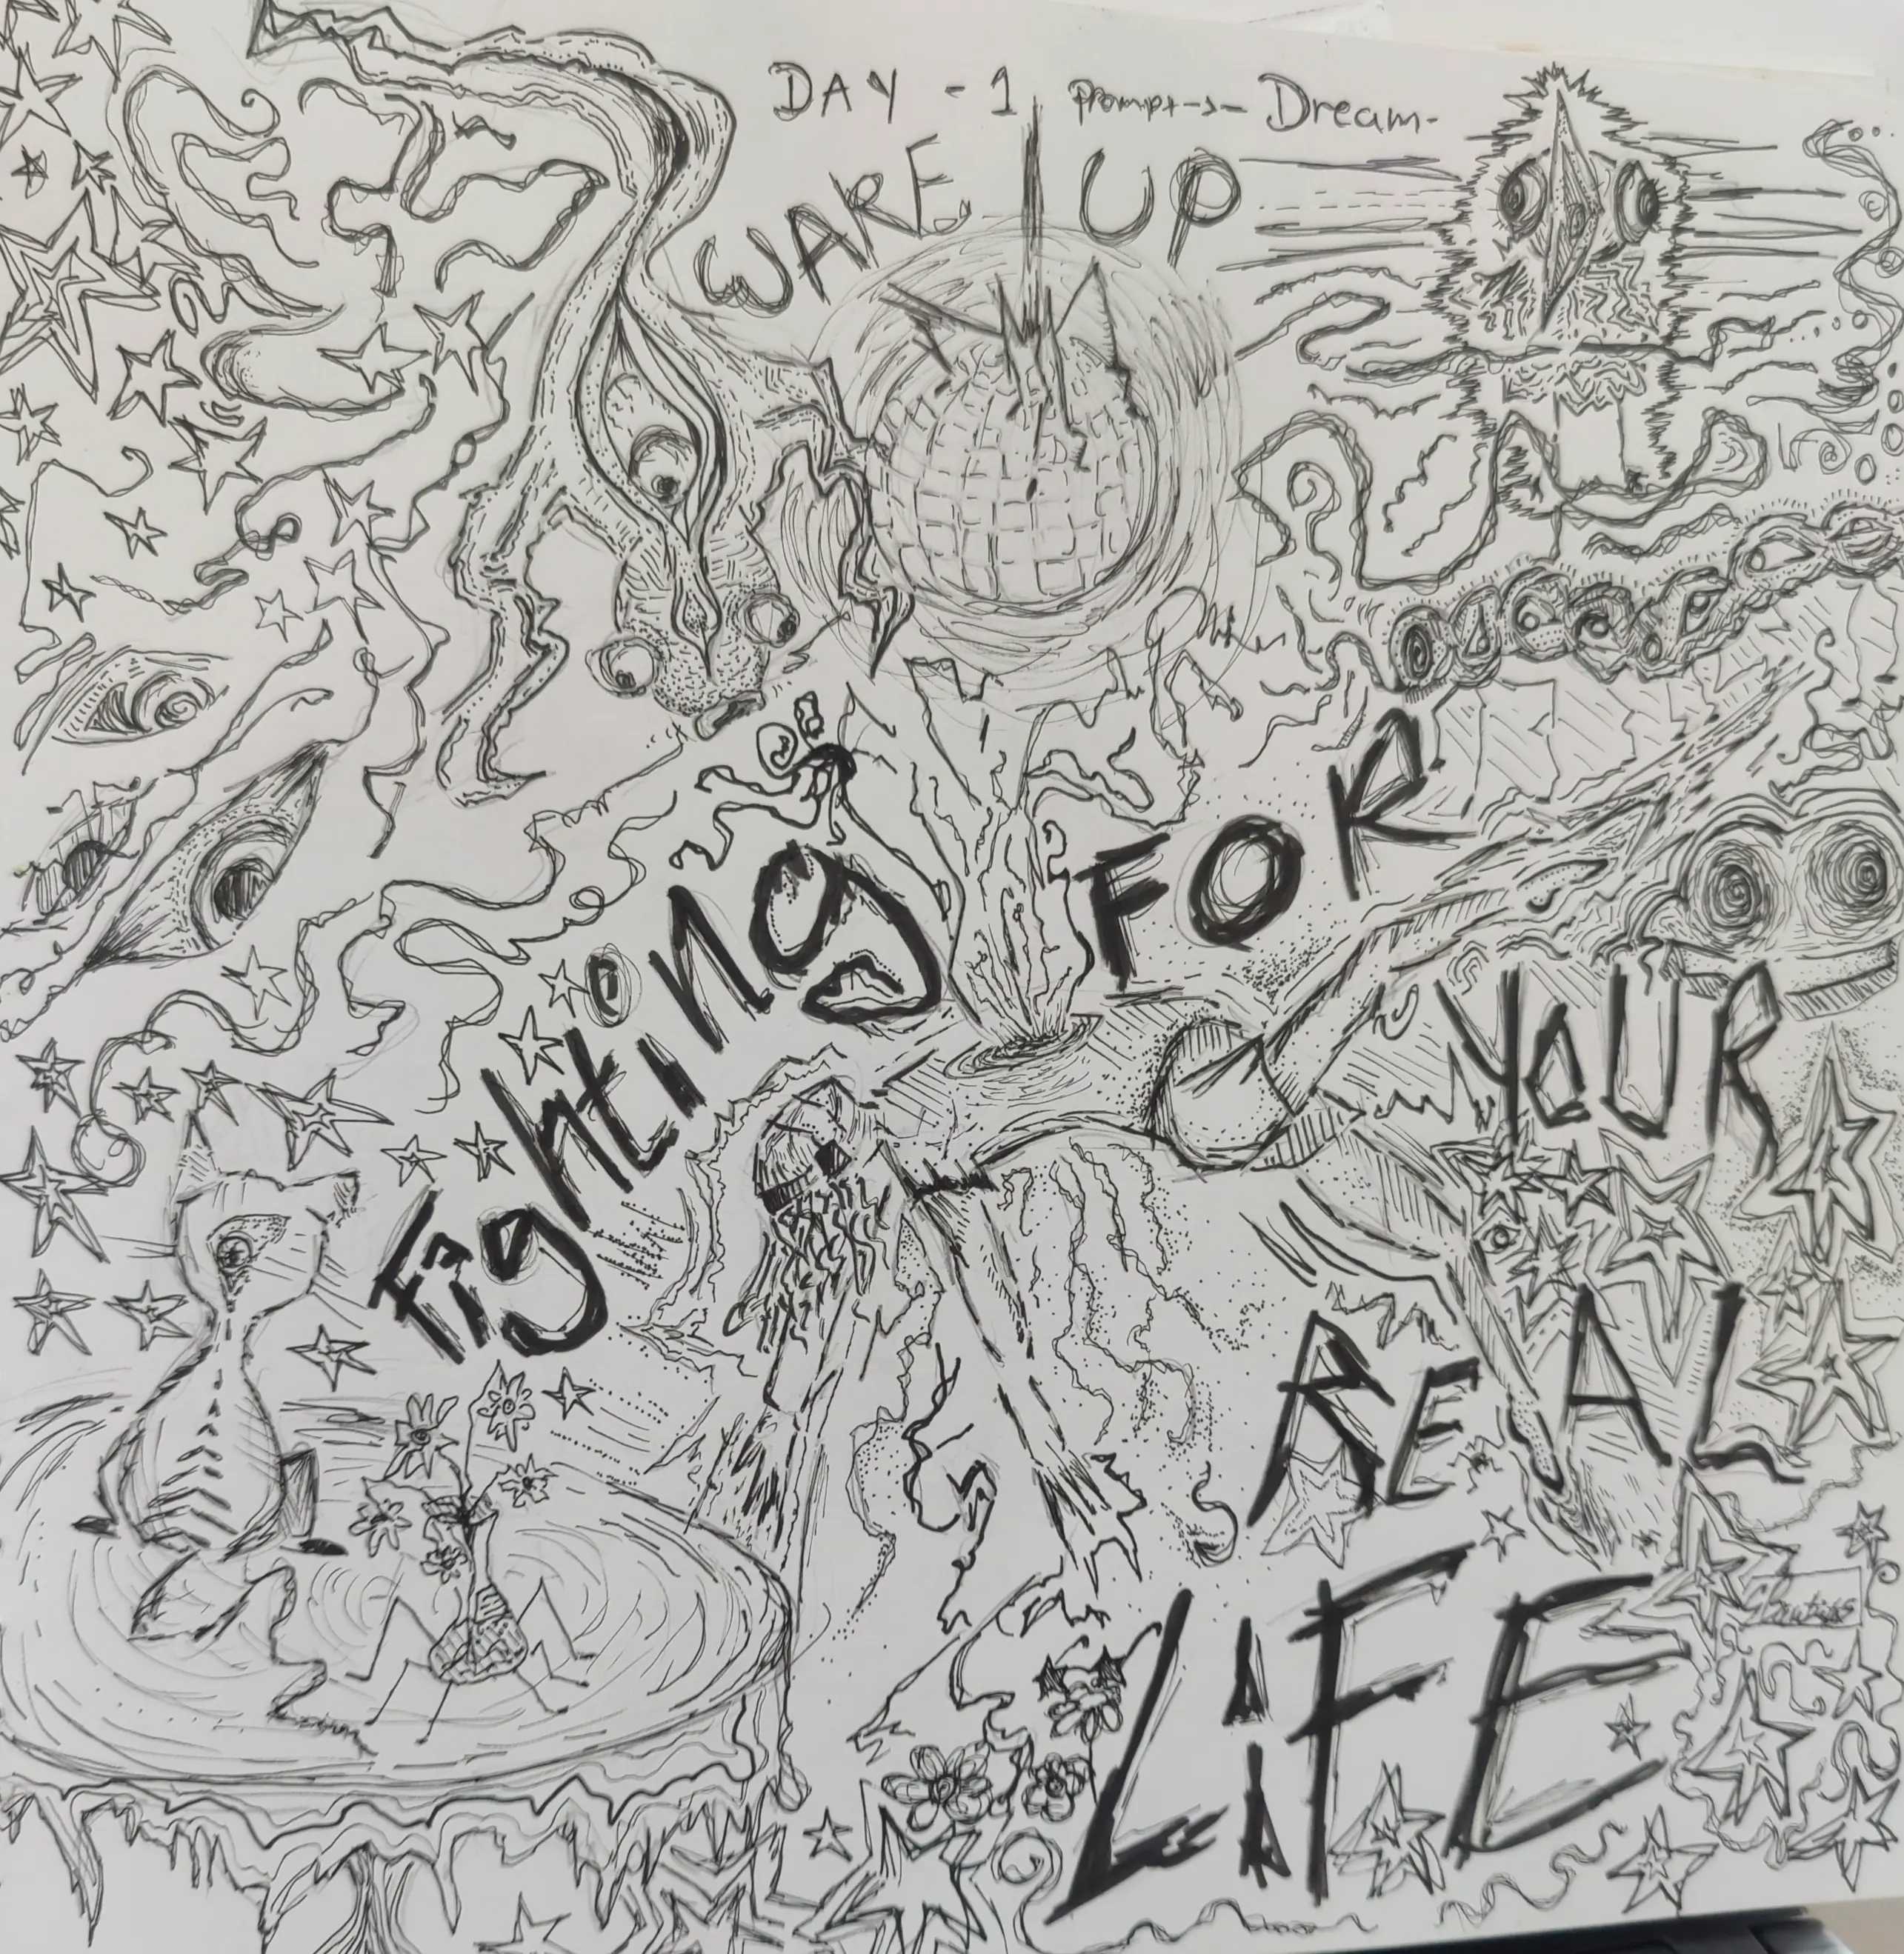 DAY - 1 Prompt --> - Dream -
WAKE UP
Fighting FOR
YOUR
REAL
LIFE